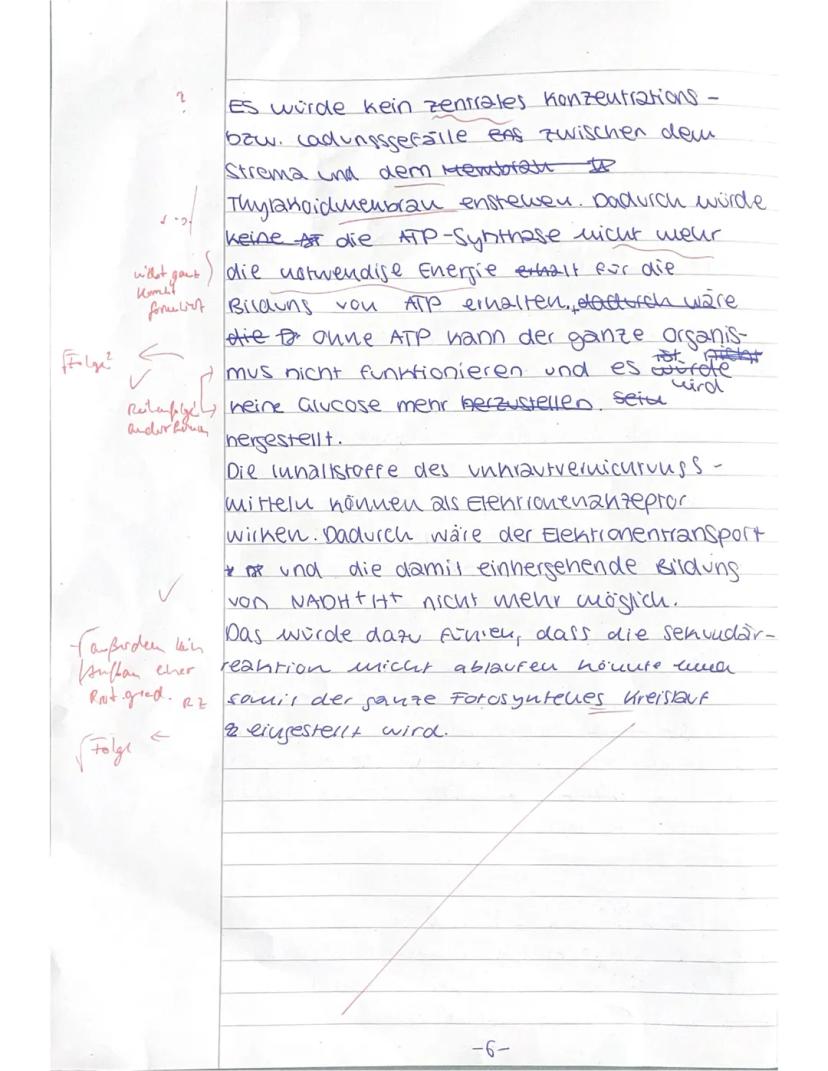 ?
Es würde kein zentrales Konzentrations-
bzw. Ladungsgefälle zwischen dem
Stroma und dem Membran
Thylakoidmembran enstehen. Dadurch würde
keine die ATP-Synthase nicht mehr
nicht ganz
korrekt
formuliert
die notwendige Energie erhält für die
Bildung von ATP erhalten, dadurch wäre
die ohne ATP kann der ganze Organis-
√Folge²
mus nicht funktionieren und es würde ist nicht
wird
Reihenfolge
keine Glucose mehr herzustellen. sein
hergestellt.
Die Inhaltstoffe des Unkrautvernichtungs-
mitteln können als Elektronenakzeptor
wirken. Dadurch wäre der Elektronentransport
und die damit einhergehende Bildung
von NADH+H+ nicht mehr möglich.
Das würde dazu führen, dass die Sekundär-
√außerdem kein
Aufbau einer
Prot.grad. RZ
reaktion nicht ablaufen könnte und
somit der ganze Fotosynteses Kreislauf
√Folge
eingestellt wird.
-6-